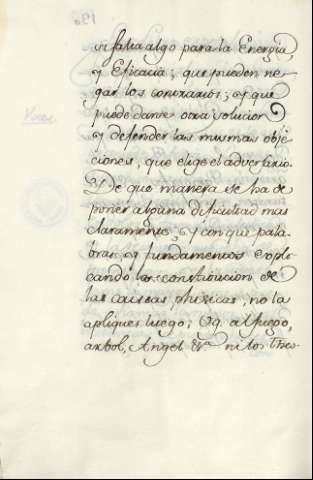 130
si falta algo para la Energia,
y Eficacia; que pueden ne-
gar los contrarios; y que
puede darse otra solucion
y defender las mismas obje-
ciones, que elige el adversario.
De que manera se ha de
poner alguna dificultad mas
claramente, y con que pala-
bras, y fundamentos explo-
cando la constitucion de
las causas phisicas, no la
apliques luego; Vg. al fuego,
arbol, Angel &ª ni los Theo-